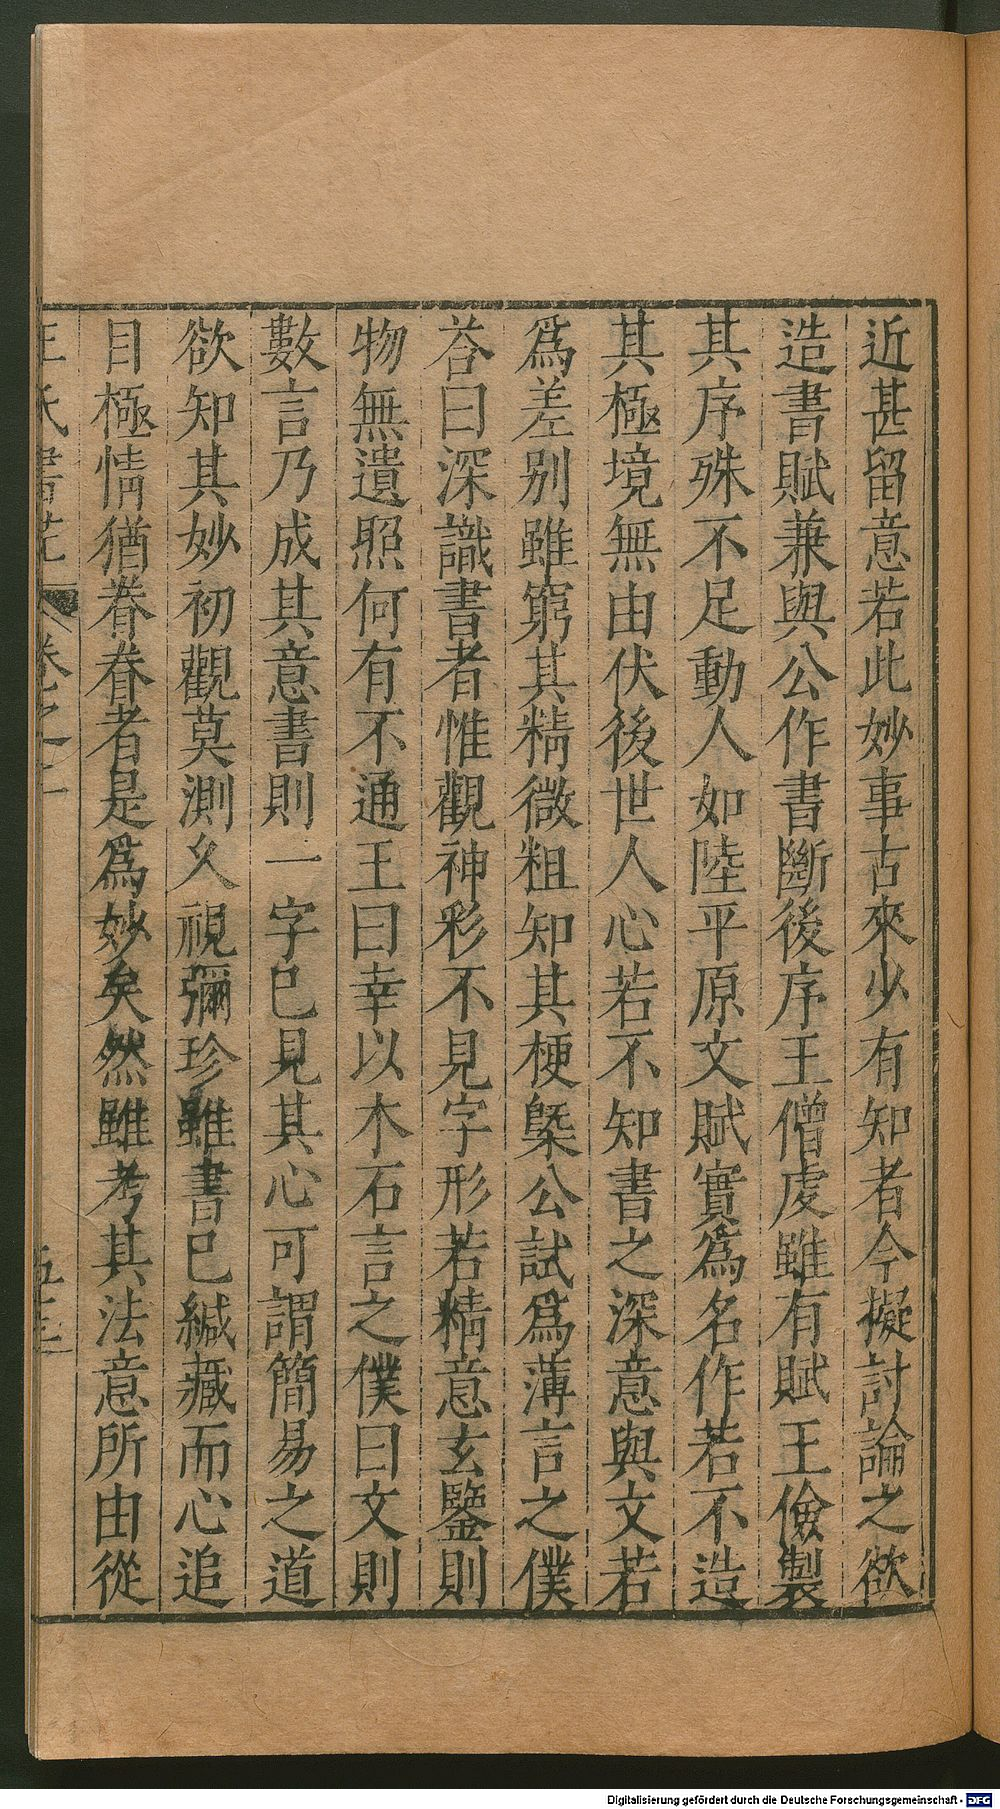 近甚留意若此妙事古來少有知者今擬討論之欲
造書賦兼與公作書斷後序王僧虔雖有賦王儉製
其序殊不足動人如陸平原文賦實爲名作若不造
其極境無由伏後世人心若不知書之深意與文若
爲差別雖窮其精微粗知其梗槩公試爲薄言之僕
荅曰深識書者惟觀神彩不見字形若精意玄鑒則
物無遺照何有不通王曰幸以木石言之僕曰文則
數言乃成其意書則一字已見其心可謂簡易之道
欲知其妙初觀莫測久視彌珍雖書已緘藏而心追
目極情猶眷眷者是爲妙矣然雖考其法意所由從
王氏書苑 卷之二
Digitalisierung gefördert durch die Deutsche Forschungsgemeinschaft - DFG